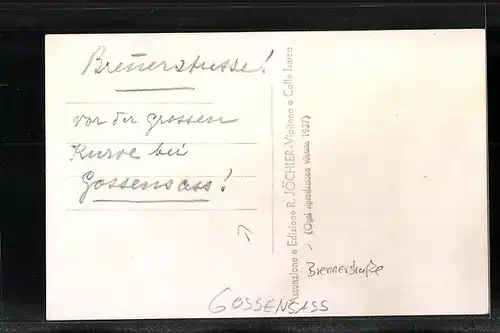 Brennerstrasse!
vor der grossen
Kurve bei
Gossensass!
Assunzione e Edizione R. JÖCHLER - Vipiteno e Colle Isarco
(Ogni riproduzione vietata 1937)
Brennerstraße
GOSSENSASS